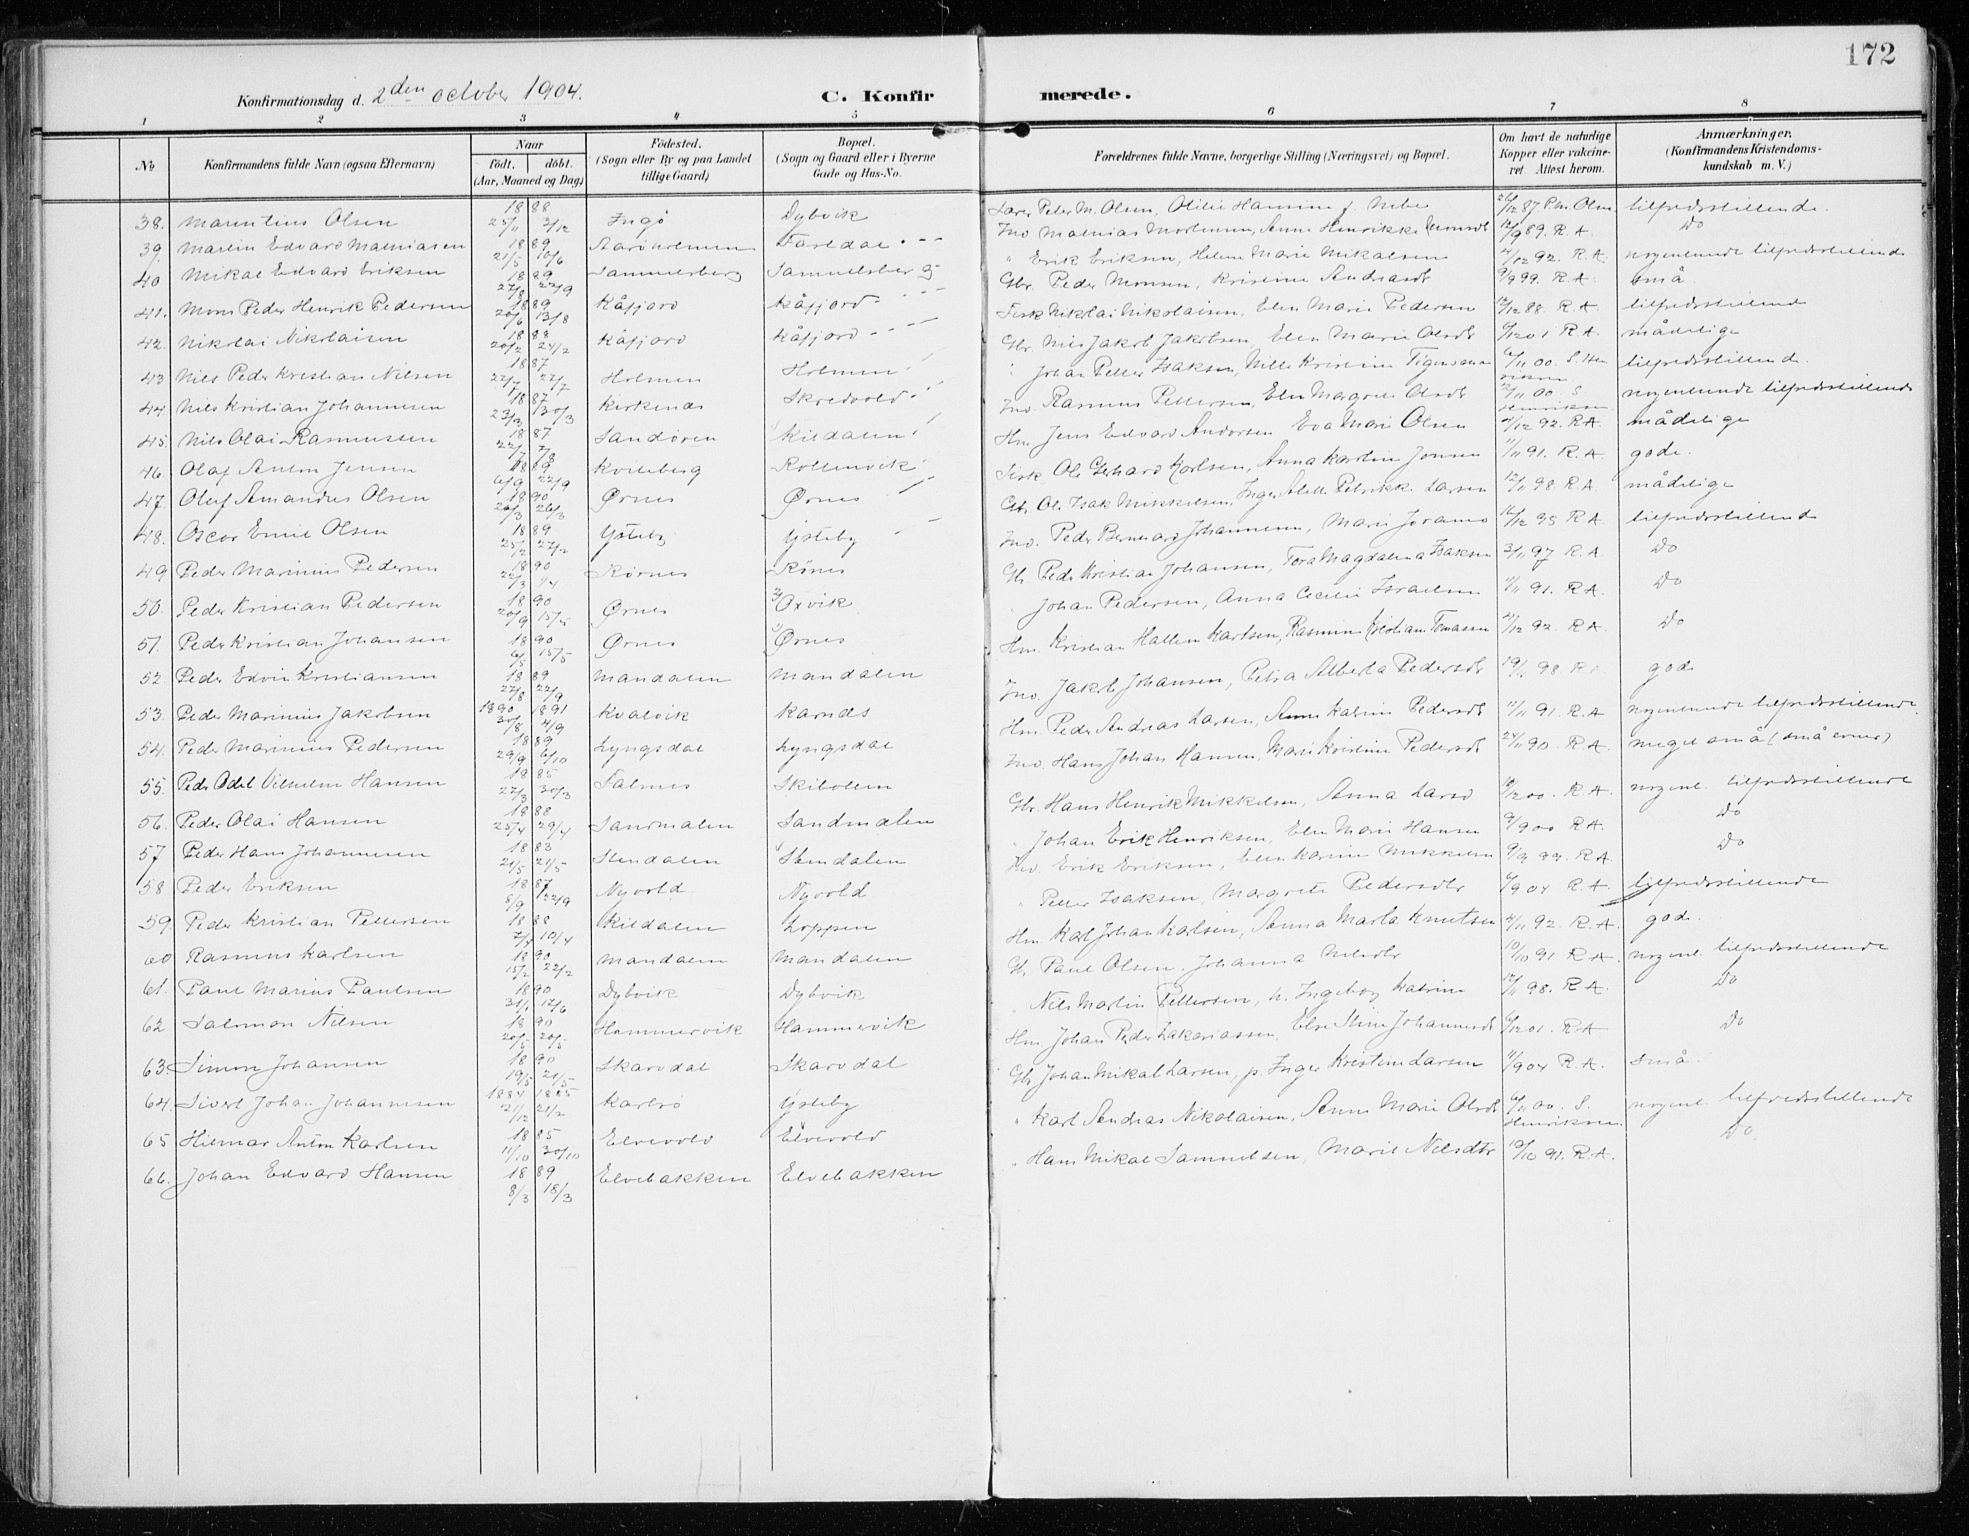 172
Konfirmationsdag d. 2den october 1904.
C. Konfirmerede.
1 2 3 4 5 6 7 8
No
Konfirmandens fulde Navn (ogsaa Efternavn)
Naar
födt. döbt.
(Aar, Maaned og Dag)
Födested.
(Sogn eller By og paa Landet
tillige Gaard)
Bopæl.
(Sogn og Gaard eller i Byerne
Gade og Hus-No.
Forældrenes fulde Navne, borgerlige Stilling (Næringsvei) og Bopæl.
Om havt de naturlige
Kopper eller vakcine-
ret. Attest herom.
Anmærkninger.
(Konfirmandens Kristendoms-
kundskab m. V.)
38. Mauritius Olsen 1888 25/11 2/12 Ingö Dybvik Lærer Peter M. Olsen, Otilie Hansine f. 26/12 87 P.M. Olsen tilfredsstillende.
39. Martin Edvard Mathiasen 1889 21/5 10/6 Aaröholmen Inv Mathias Mortensen, Anne Henrikke 12/9 89. R. A. Do
40 Mikal Edvard Eriksen 1889 22/9 Sammelsberg Samuelsberg " Erik Eriksen, Helene Marie Mikalsen 4/12 92. R. A. nogenlunde tilfredsstillende
41. Mons Peder Henrik Pedersen 1889 20/6 13/8 Kåfjord Kåfjord Gbr. Peder Monsen, Kristine Andreasdt 9/9 99. R. A. små.
42. Nikolai Nikolaisen 1888 20/2 24/2 Kåfjord Kåfjord Fisk Nikolai Nikolaisen, Elen Marie Pedersen 12/12 88. R. A. tilfredsstillende
43 Nils Peder Kristian Nilsen 1887 22/7 27/7 Holmen Holmen Gbr. Nils Jakob Jakobsen, Elen Marie Olsdt 6/12 01 R. A. mådelige
44 Nils Kristian Johannesen 1887 23/3 30/3 Kirkenes Skredvold " Johan Petter Isaksen, Nille Kristine 6/11 00. S. Henriksen tilfredsstillende.
45. Nils Olai Rasmussen 1887 22/7 7/8 Sandören Kildalen Inv. Rasmus Pettersen, Elen Margrete Olsdt 12/11 00. S. Henriksen nogenlunde tilfredsstillende
46. Olaf Anton Jensen 1889 6/9 22/9 Kviteberg Rottenvik Hm Jens Edvard Andersen Eva Marie Olsen 4/12 92. R.A. mådelige
47. Oluf Amandus Olsen 1890 20/3 26/3 Ørnes Ørnes Fisk Ole Gerhard Karlsen, Anna Karoline Jonsen 11/11 91. R. A. gode.
48. Oscar Emil Olsen 1889 25/2 27/2 Ysteby Ysteby Gb. Ole Isak Mikkelsen, Inger Alette Petrikke Larsen 12/11 98. R A. mådelige
49 Peder Marinius Pedersen 1890 22/3 4/4 Rörnes Rönes Inv. Peder Bernhard Johannesen, Marie 16/12 95 R A. tilfredsstillende
50. Peder Kristian Pedersen 1890 20/9 15/5 Ørnes Oxvik Gb Peder Kristian Johansen, Tora Magdalena Isaksen 3/11 97 R. A. Do
51. Peder Kristian Johansen 1890 6/5 15/5 Ørnes Ørnes " Johan Pedersen, Anna Cecilie Israelsen 11/11 91. R A. Do
52 Peder Edvin Kristiansen 1889 27/8 22/9 Mandalen Mandalen Hm. Kristian Hallen Karlsen, Rasmine Kristiane Tomasen 4/12 92. R. A. Do
53. Peder Marinius Jakobsen 1890 1891 30/8 4/9 Kvalvik Karnes Inv. Jakob Johansen, Petra Alberta Pedersdt 19/1 98. R A god
54. Peder Marinius Pedersen 1889 29/9 6/10 Lyngsdal Lyngsdal Hm. Peder Andreas Larsen, Anne Katrine Pedersdt 11/11 91. R. A nogenlunde tilfredsstillende.
55. Peder Odel Vilhelm Hansen 1885 27/3 30/3 Falsnes Skibotten Inv. Hans Johan Hansen, Marie Kristine Pedersdt 24/11 90. R. A. meget små (små evner)
56. Peder Olai Hansen 1888 25/4 29/4 Sandmælen Sandmælen Gbr. Hans Henrik Mikkelsen, Anna Larsd 18/12 00. R. A. nogenl. tilfredsstillende
57 Peder Hans Johannesen 1883 21/5 21/5 Stendalen Stendalen " Johan Erik Henriksen, Elen Marie Hansen 9/9 00 R A. Do
58 Peder Eriksen 1887 8/9 22/9 Nyvold Nyvold Inv. Erik Eriksen, Elen Karine Mikkelsen 9/9 99. R A. Do
59. Peder Kristian Pettersen 1888 7/4 10/4 Kildalen Loppen " Petter Isaksen, Margrete Pedersdtr 6/9 04 R A. tilfredsstillende
60 Rasmus Karlsen 1890 15/2 22/2 Mandalen Mandalen Hm. Karl Johan Karlsen, Anna Marta Knutsen 4/11 92. R. A. god.
61. Paul Marius Paulsen 1890 31/1 12/6 Dybvik Dybvik Gb. Paul Olsen. Johanna Nilsdtr 10/10 91 R. A. nogenl. tilfredsstillende
62 Salomon Nilsen 1890 20/5 20/5 Hammervik Hammervik " Nils Martin Pettersen, h. Ingeborg Katrine 12/11 98. R. A Do
63. Simon Johansen 1890 19/5 21/5 Skarvdal Skarvdal Hm Johan Peder Zakariassen, Else Stine Johannesdt 6/12 01. R.A Do
64. Sivert Johan Johannesen 1884 1885 21/12 21/2 Karlsö Ysteby Gb. Johan Mikal Larsen, p. Inger Kristine Larsen 11/9 04 R. A. små
65 Hilmar Anton Karlsen 1885 11/10 30/10 Elvevold Elvevold " Karl Andreas Nikolaisen. Anne Marie Olsdt 6/11 00. S. Henriksen. nogenl. tilfredsstillende
66. Johan Edvard Hansen 1889 8/3 18/3 Elvebakken Elvebakken " Hans Mikal Samuelsen, Marie Nilsdtr 19/10 91. R. A. Do.